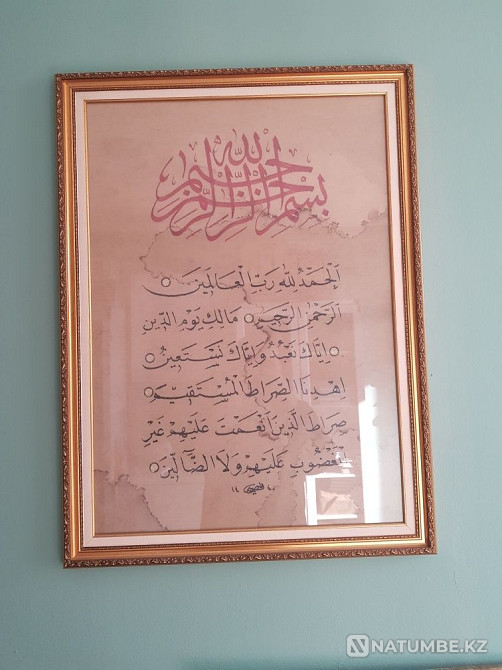 بِسْمِ اللَّهِ الرَّحْمَٰنِ الرَّحِيمِ
اَلْحَمْدُ لِلّٰهِ رَبِّ الْعَالَمِينَ ○
اَلرَّحْمٰنِ الرَّحِيمِ ○ مَالِكِ يَوْمِ الدِّينِ
○ اِيَّاكَ نَعْبُدُ وَاِيَّاكَ نَسْتَعِينُ ○
اِهْدِنَا الصِّرَاطَ الْمُسْتَقِيمَ ○
صِرَاطَ الَّذِينَ اَنْعَمْتَ عَلَيْهِمْ غَيْرِ
الْمَغْضُوبِ عَلَيْهِمْ وَلَا الضَّالِّينَ ○
NATUMBE.KZ